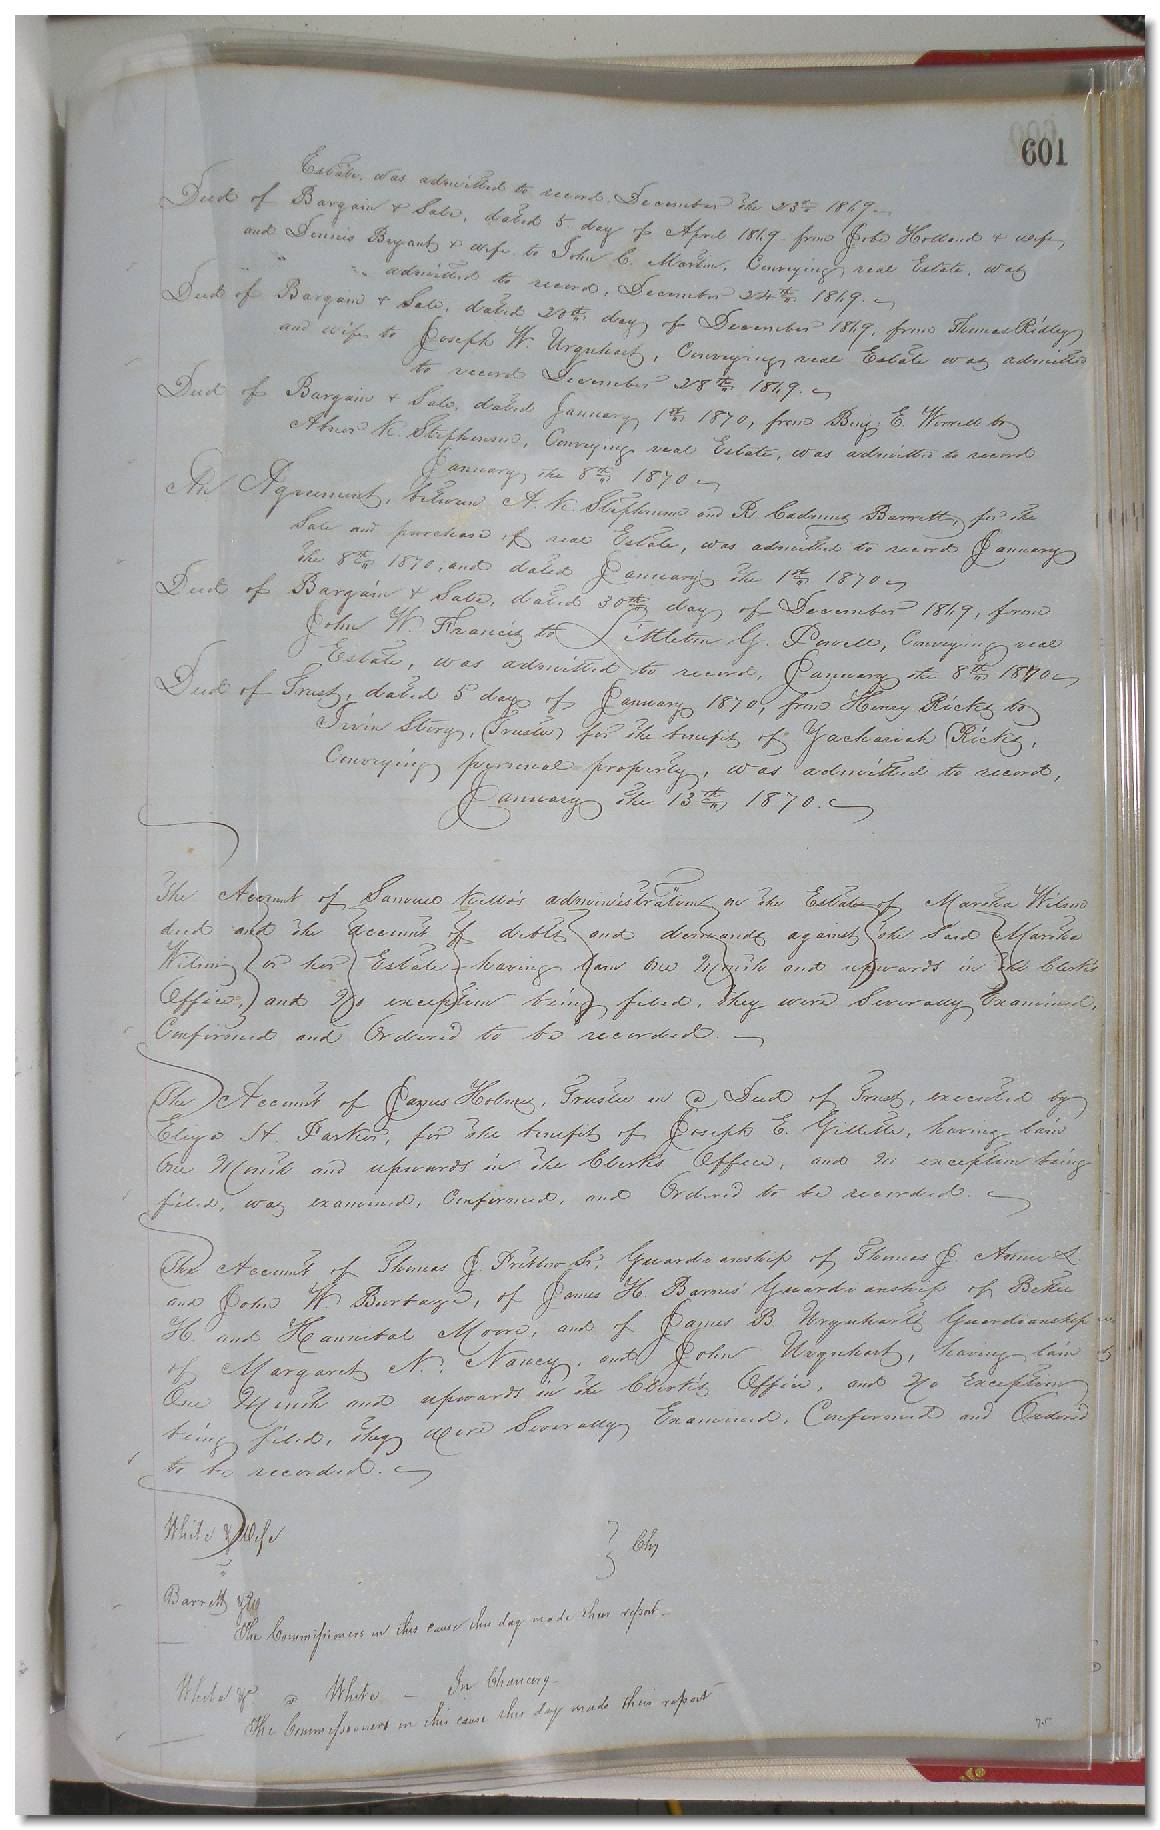 601
Estate, was admitted to record, December the 23rd 1869.
Deed of Bargain & Sale, dated 5 day of April 1869 from Jobe Holland & wife,
and Dennis Bryant & wife to John C. Martin, Conveying real Estate, was
" " admitted to record, December 24th 1869.
Deed of Bargain & Sale, dated 20th day of December 1869, from Thomas Ridley
and wife to Joseph W. Urquhart, Conveying real Estate was admitted
to record December 28th 1869.
Deed of Bargain & Sale, dated January 1st 1870, from Benj. E. Worrell to
Abner K. Stephenson, Conveying real Estate, was admitted to record
January the 8th 1870
An Agreement, between A. K. Stephenson and R. Cadmus Barrett, for the
Sale and purchase of real Estate, was admitted to record January
the 8th 1870, and dated January the 1st 1870
Deed of Bargain & Sale, dated 30th day of December 1869, from
John W. Francis to Littleton G. Powell, Conveying real
Estate, was admitted to record, January the 8th 1870
Deed of Trust, dated 5 day of January 1870, from Henry Ricks to
Irvin Story, (Trustee) for the benefit of Zachariah Ricks,
Conveying personal property, was admitted to record,
January the 13th 1870.
The Account of Samuel Kello's administration on the Estate of Martha Wilson
decd and the Account of debts and demands against the Said Martha
Wilson or her Estate having lain One Month and upwards in the Clerk's
Office, and No exception being filed, they were Severally Examined,
Confirmed and Ordered to be recorded.
The Account of James Holmes, Trustee in a Deed of Trust, executed by
Eliza A. Parker, for the benefit of Joseph E. Gillette, having lain
One Month and upwards in the Clerk's Office, and No exception being
filed, was examined, Confirmed, and Ordered to be recorded.
The Account of Thomas J. Pretlow Sr, Guardianship of Thomas J. &
and John W. Burbage, of James H. Barnes' Guardianship of Bettie
H. and Hannibal Moore, and of James B. Urquhart's Guardianship
of Margaret N., Nancy, and John Urquhart, having lain
One Month and upwards in the Clerk's Office, and No Exception
being filed, they were Severally Examined, Confirmed and Ordered
to be recorded.
White & Wife
} Chy
Barrett &c
The Commissioners in this cause this day made their report.
White &c v White - In Chancery
The Commissioners in this cause this day made their report